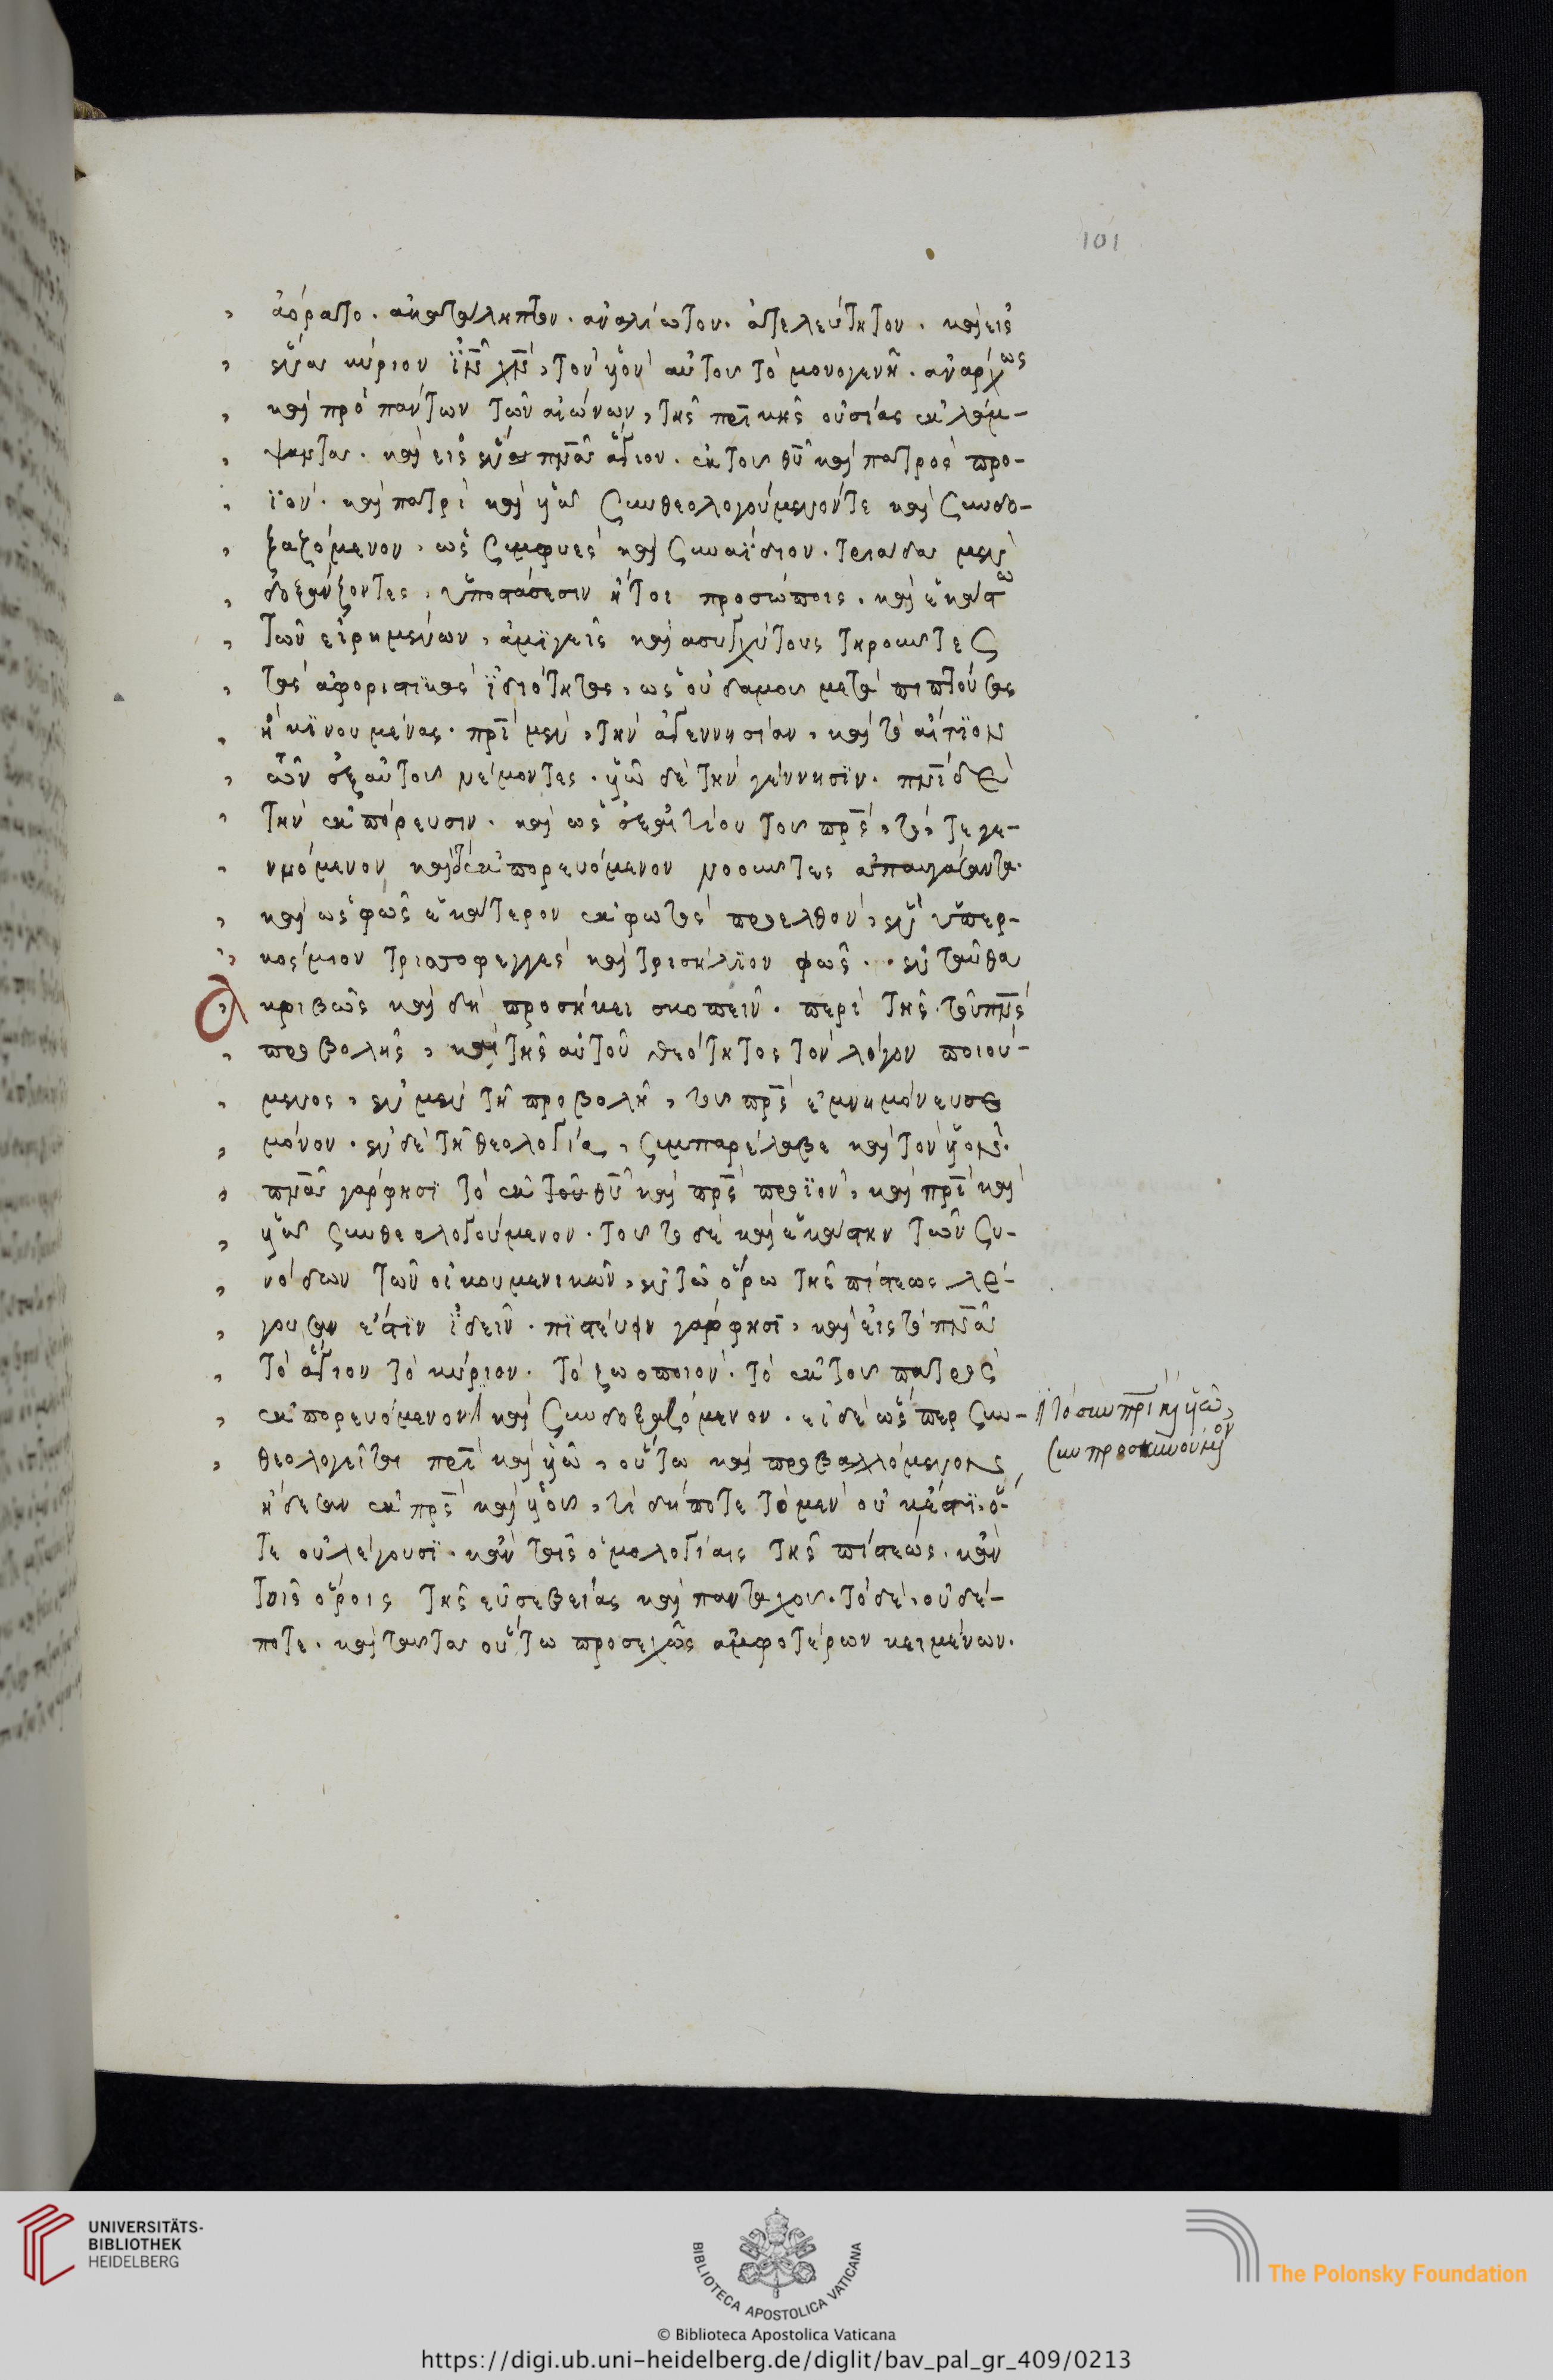 101
ἀόρατο. ἀκατάληπτον. ἀναλίωτον. ἀτελεύτητον. καὶ εἰς
ἕνα κύριον ἰν̅ χν̅, τὸν υἱὸν αὐτοῦ τὸ μονογενῆ. ἀνάρχως
καὶ πρὸ πάντων τῶν αἰώνων, τῆς πρικῆς οὐσίας ἐκλάμ-
ψαντα. καὶ εἰς ἕνα πνα̅ ἅγιον. ἐκ τοῦ θυ̅ καὶ πατρὸς προ-
ϊὸν. καὶ πατρὶ καὶ υἱῶ συνθεολογούμενόν τε καὶ συνδο-
ξαζόμενον, ὡς συμφυὲς καὶ συναΐδιον. τριάδα μὲν
δοξάζοντες, ὑποστάσεσιν ἤτοι προσώποις. καὶ ἑκάστω
τῶν εἰρημένων, ἀμϊγεῖς καὶ ἀσυγχύτους τηροῦντες
τὰς ἀφοριστϊκὰς ἰδιότητας, ὡς οὐδαμοῦ μεταπιπτούσας
ἢ κϊνουμένας. πρι̅ μὲν, τὴν ἀγεννησίαν, καὶ τὸ αἴτϊον
ὧν ἐξ αὐτοῦ νέμοντες. υἱῶ δὲ τὴν γέννησϊν. πνι̅ δὲ
τὴν ἐκπόρευσιν. καὶ ὡς ἐξ αἰτίου τοῦ πρς̅, τό, τε γε-
ννόμενον καὶ τὸ ἐκπορευόμενον νοοῦντες ἀπαυγάσαντα.
καὶ ὡς φῶς ἑκάτερον ἐκ φωτὸς προελθὸν, ἓν ὑπερ-
κόσμιον τριασοφεγγὲς καὶ τρισήλϊον φῶς.. ἐνταῦθα
κριβῶς καὶ δὴ προσήκει σκοπεῖν. περὶ τῆς τοῦ πνς̅
προβολῆς, καὶ τῆς αὐτοῦ θεότητος τὸν λόγον ποιού-
μενος, ἐν μὲν τῆ προβολῆ, τοῦ πρς̅ ἐμνημόνευσε
μόνον. ἐν δὲ τῆ θεολογία, συμπαρέλαβε καὶ τὸν υἱὸν.
πνα̅ γάρ φησϊ τὸ ἐκ τοῦ θυ̅ καὶ πρς̅ προϊὸν, καὶ πρι̅ καὶ
υἱῶ συνθεολογούμενον. τοῦτο δὲ καὶ ἑκάστην τῶν συ-
νόδων τῶν οἰκουμενικῶν, ἐν τῶ ὅρω τῆς πίστεως λέ-
γουσαν ἐστϊν ἰδεῖν. πϊστεύειν γάρ φησϊ, καὶ εἰς τὸ πνα̅
τὸ ἅγιον τὸ κύριον. τὸ ζωοποιὸν. τὸ ἐκ τοῦ πατρὸς
ἐκπορευόμενον καὶ συνδοξαζόμενον. εἰ δὲ ὥσπερ συν-
τὸ σὺν πρι̅ κ υἱῶ,
συμπροσκυνούμενον
θεολογεῖται πρι̅ καὶ υἱῶ, οὕτω καὶ προβαλλόμενον
ἤδεσαν ἐκ πρς̅ καὶ υἱοῦ, τί δήποτε τὸ μὲν οὐκ ἔστϊ, ὅ-
τε οὐ λέγουσϊ. κἂν ταῖς ὁμολογίαις τῆς πίστεως. κἂν
τοῖς ὅροις τῆς εὐσεβείας καὶ πανταχοῦ. τὸ δὲ, οὐδέ-
ποτε. καὶ ταῦτα οὕτω προσεχῶς ἀμφοτέρων κειμένων.
UNIVERSITÄTS-
BIBLIOTHEK
HEIDELBERG
BIBLIOTECA APOSTOLICA VATICANA
The Polonsky Foundation
© Biblioteca Apostolica Vaticana
https://digi.ub.uni-heidelberg.de/diglit/bav_pal_gr_409/0213